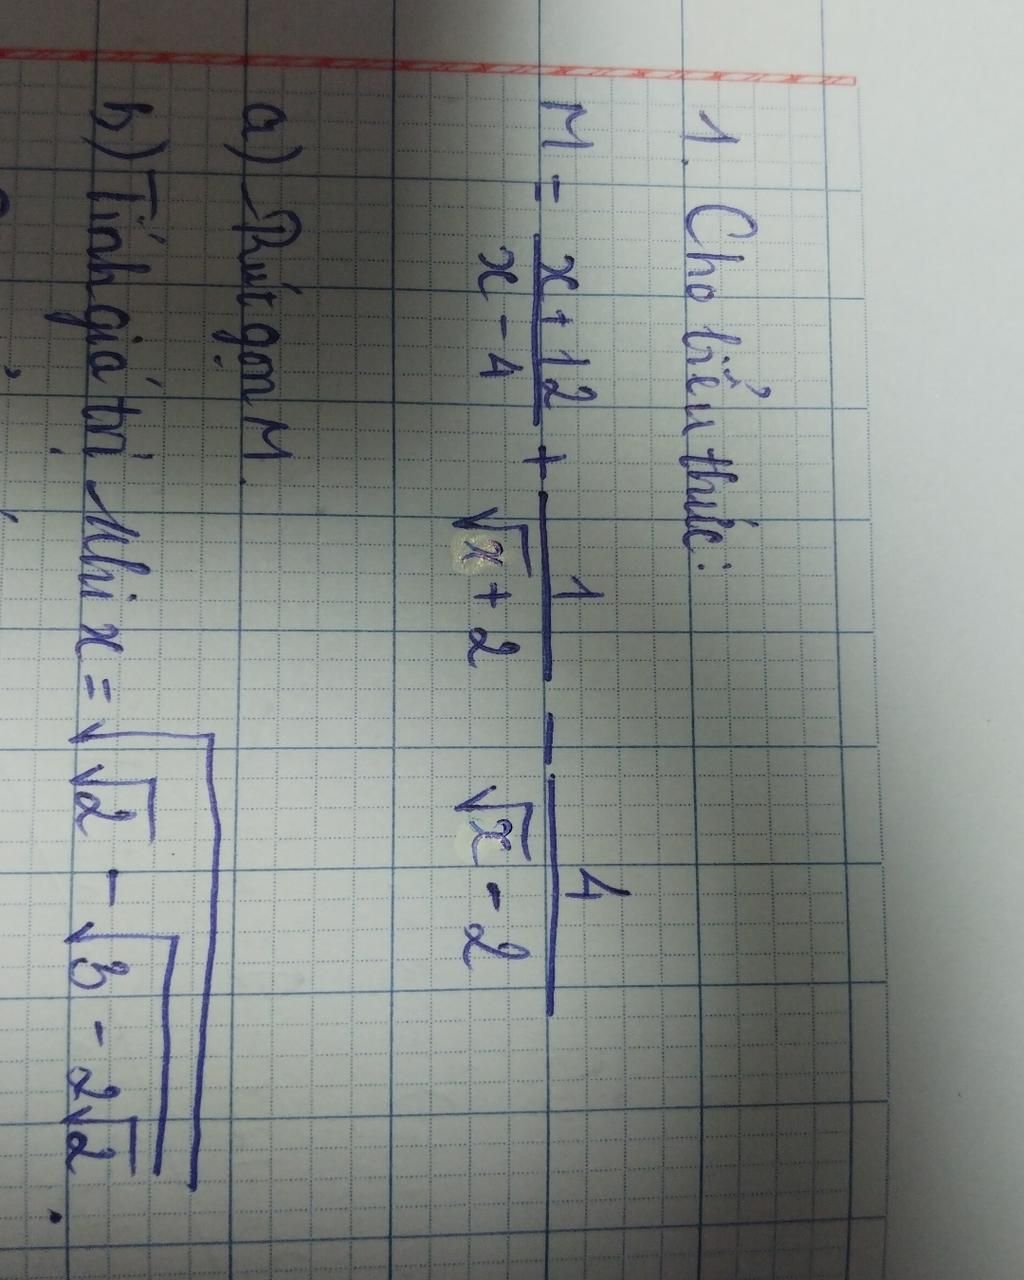 1. Cho biểu thức:
M = \frac{x+12}{x-4} + \frac{1}{\sqrt{x}+2} - \frac{4}{\sqrt{x}-2}
a) Rút gọn M.
b) Tính giá trị khi x = \sqrt{\sqrt{2} - \sqrt{3-2\sqrt{2}}}.